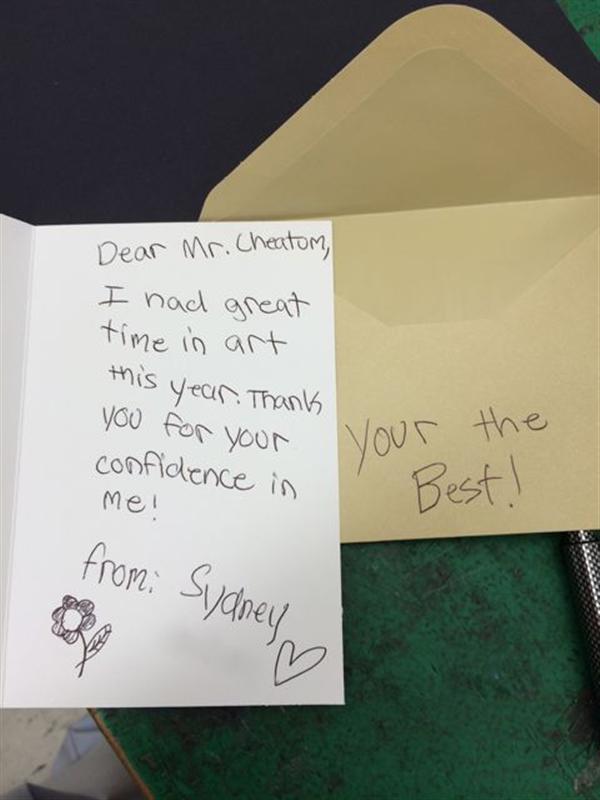 Dear Mr. Cheatom,
I had great
time in art
this year. Thank
you for your
confidence in
me!
from: Sydney
your the
Best!